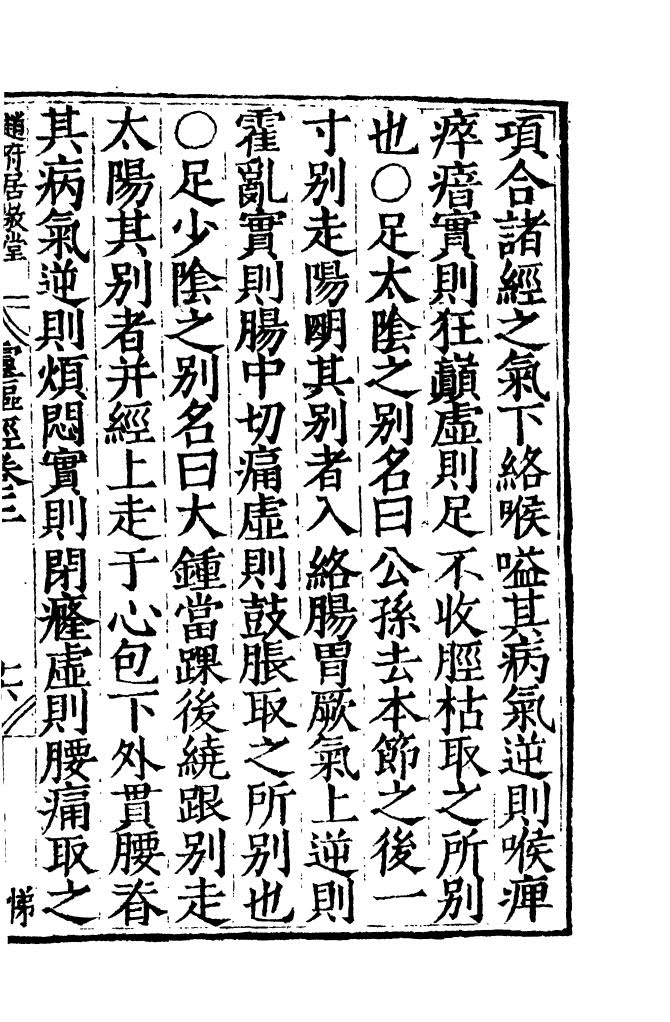 項合諸經之氣下絡喉嗌其病氣逆則喉痺
瘁瘖實則狂巔虛則足不收脛枯取之所別
也○足太陰之別名曰公孫去本節之後一
寸別走陽明其別者入絡腸胃厥氣上逆則
霍亂實則腸中切痛虛則鼓脹取之所別也
○足少陰之別名曰大鍾當踝後繞跟別走
太陽其別者并經上走于心包下外貫腰脊
其病氣逆則煩悶實則閉癃虛則腰痛取之
趙府居敬堂
靈樞經卷三
十六
悌